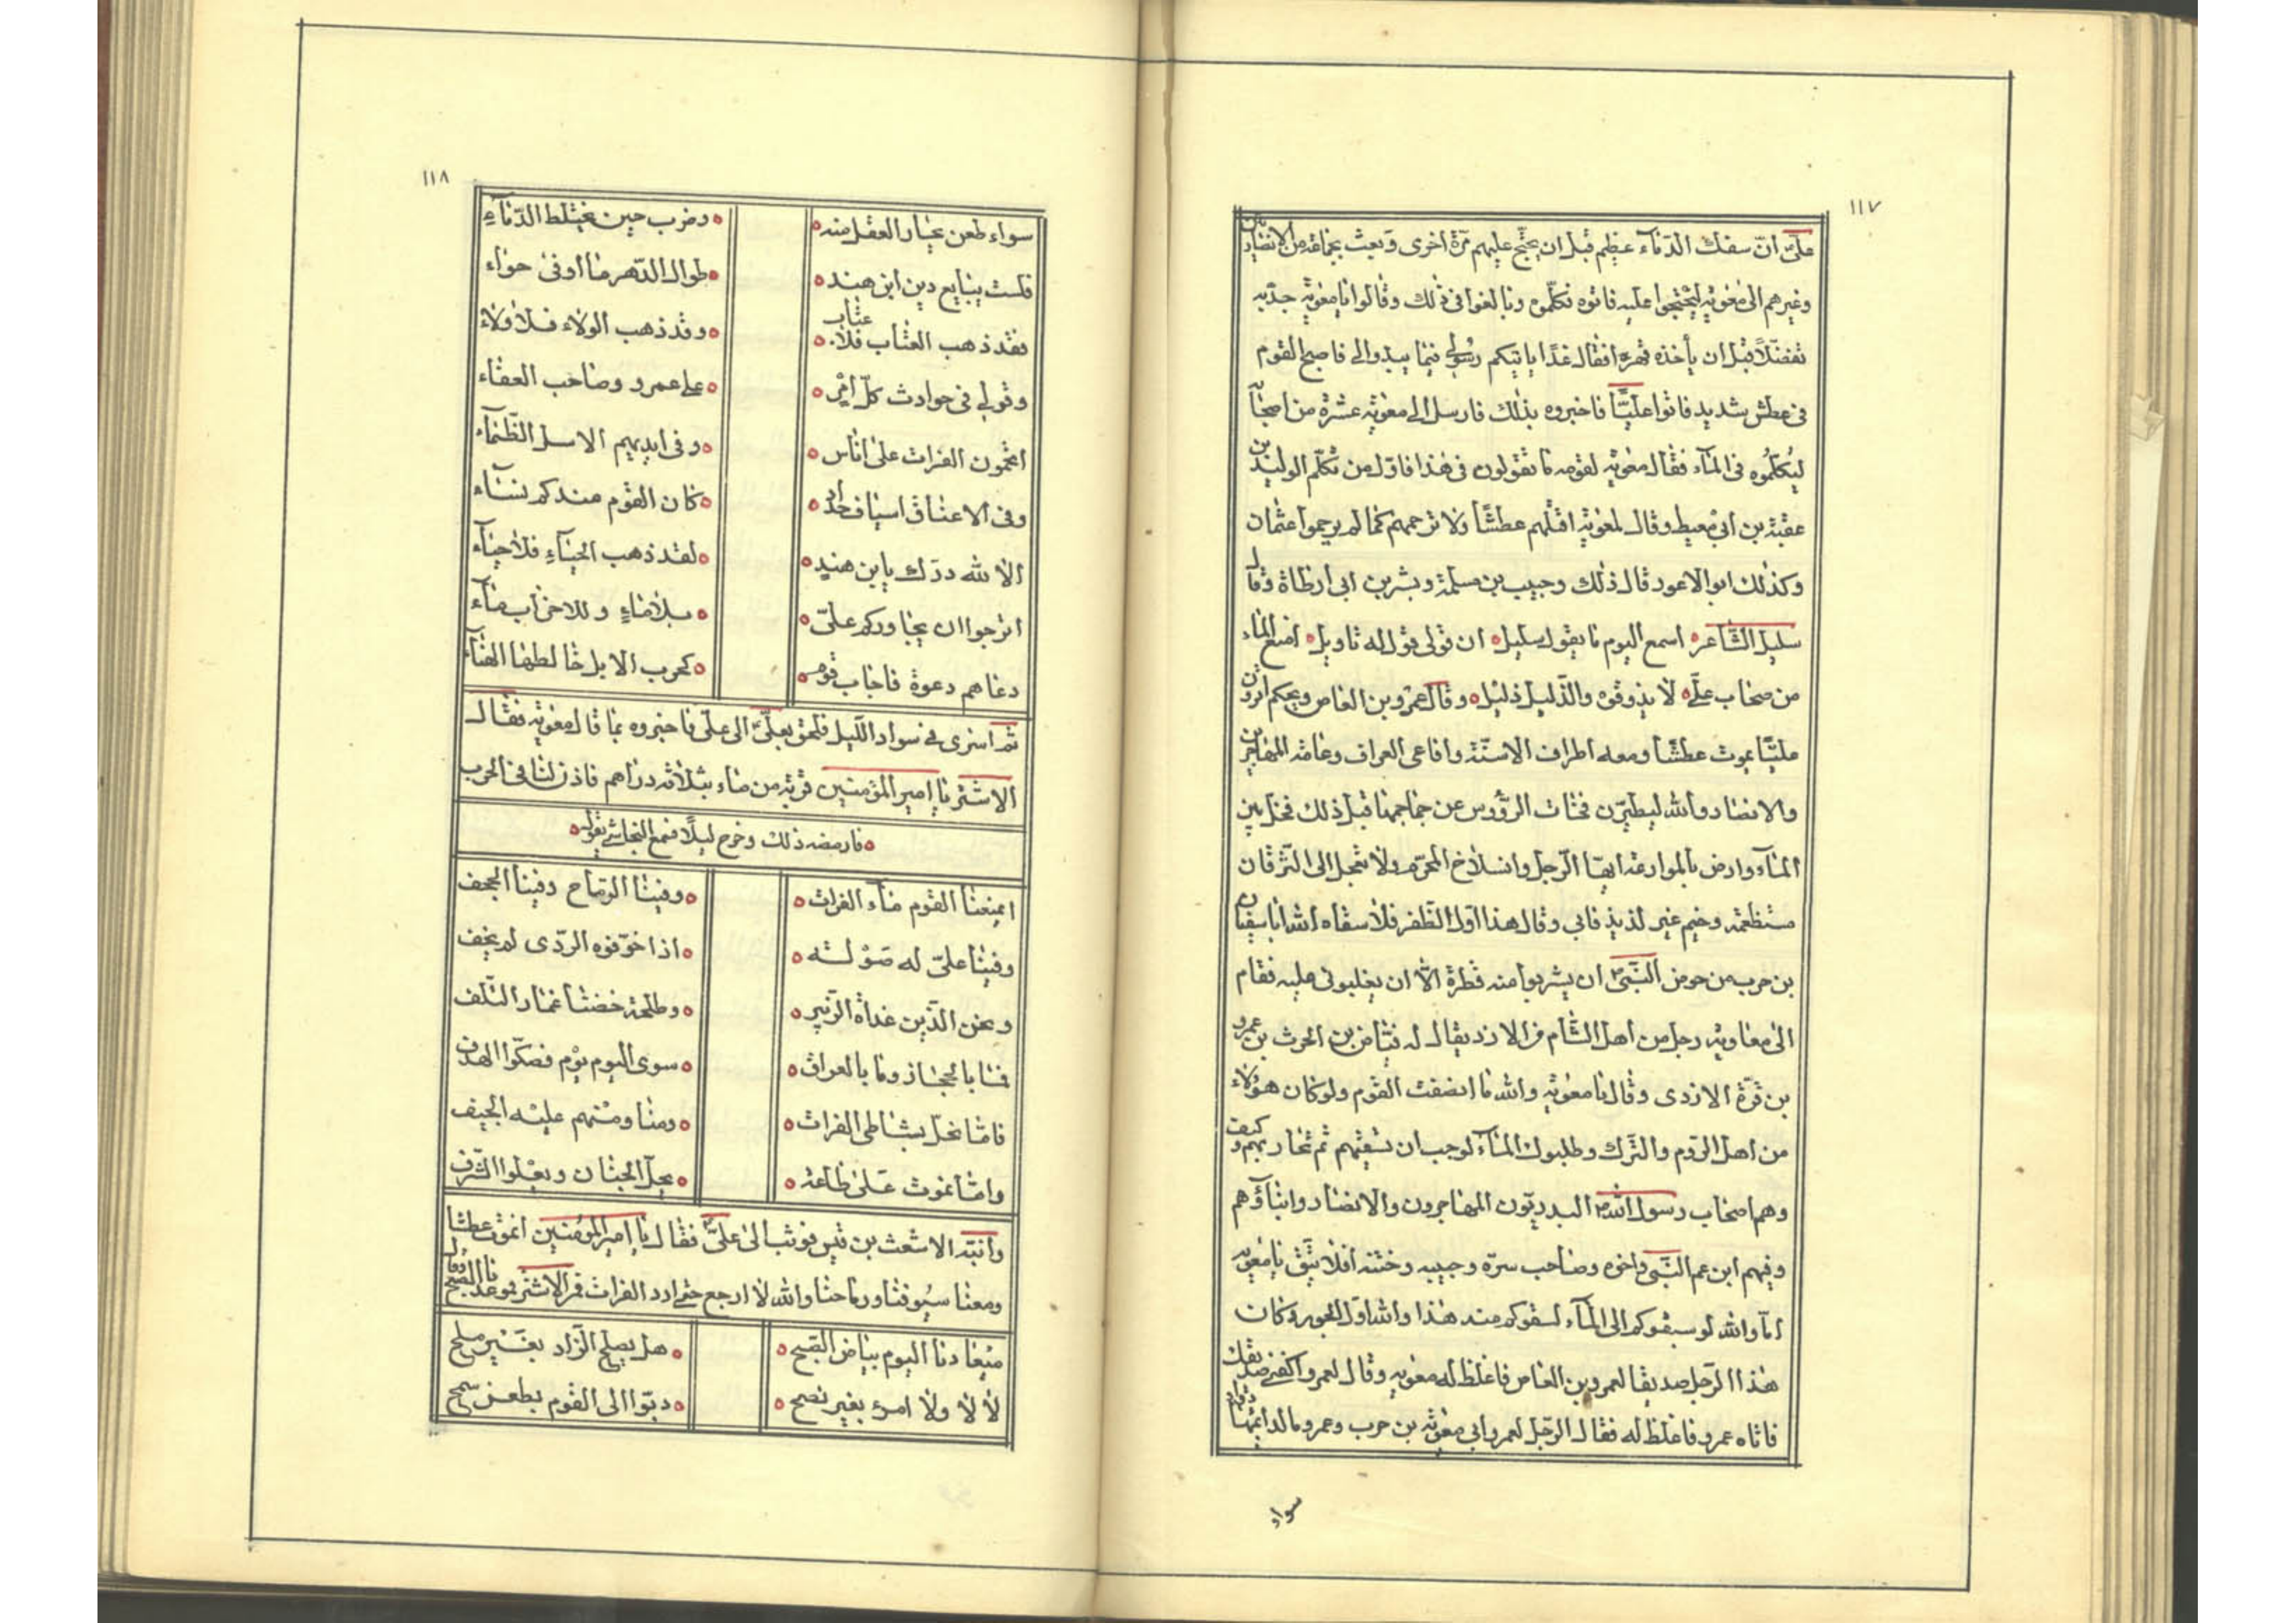 ١١٧
علىّ انّ سفك الدّماء عظيم قبل ان يحتجّ عليهم مرّة اخرى وبعث بجماعة من الانصار
وغيرهم الى معوية ليحتجوا عليه فاتوه فكلّموه وبالغوا فى ذلك وقالوا يا معوية جد به
تفضّلاً قبل ان يأخذه قهرا فقال غدًا ياتيكم رسولى فيما يبدو الى فاصبح القوم
فى عطش شديد فاتوا عليّاً فاخبروه بذلك فارسل الى معوية عشرة من اصحابه
ليكلّموه فى الماء فقال معوية لقومه ما تقولون فى هذا فاوّل من تكلّم الوليد بن
عقبة بن ابى معيط وقال لمعوية اقتلهم عطشًا ولا ترحمهم كما لم يرحموا عثمان
وكذلك ابو الاعور قال ذلك وحبيب بن مسلمة وبشر بن ابى ارطاة وقال
سليل الشاعر اسمع اليوم ما يقول سليل ان قولى قول له تاويل امنع الماء
من صحاب علىّ لا يذوقوه والذّليل ذليل وقال عمرو بن العاص ويحكم اترون
عليّا يموت عطشًا ومعه اطراف الاسنّة وافاعى العراق وعامة المهاجرين
والانصار والله ليطيرّن فحاث الرؤوس عن جماجمها قبل ذلك فخلّ بين
الماء وارض بالموادعة ايها الرّجل وانسلاخ المحرّم ولا تعجل الى التّرقان
مستطعمه وخيم غير لذيذ فابى وقال هذا اول الظّفر فلا سقاه الله ابا سفيان
بن حرب من حوض النّبىّ ان يشربوا منه قطرة الّا ان يغلبونى عليه فقام
الى معاوية رجل من اهل الشّام من الازد يقال له فياض بن الحرث بن عمرو
بن قرّة الازدى وقال يا معوية والله ما انصفت القوم ولو كان هؤلاء
من اهل الرّوم والترك وطلبوك الماء لوجب ان تسقيهم ثم تحاربهم وكيف
وهم اصحاب رسول الله البدريّون المهاجرون والانصار وابناؤهم
وفيهم ابن عم النّبىّ واخوه وصاحب سرّه وحبيبه وختنه افلا تتّق يا معوية
اما والله لو سبقوكم الى الماء لسقوكم منه هذا والله اول الجور وكان
هذا الرّجل صديقا لعمرو بن العاص فاغلظ له معوية وقال لعمرو اكفنى صديقك
فاتاه عمرو فاغلظ له فقال الرّجل لعمرو ابى معوية بن حرب وعمرو ما لدائهما دواء
سواء
١١٨
سواء طعن يحار العقل منه ٥ وضرب حين يختلط الدّماء
فلست بتابع دين ابن هند ٥ طوال الدّهر ما اوفى حراء
عتاب
فقد ذهب العتاب فلا ٥ وقد ذهب الولاء فلا ولاء
وقولى فى حوادث كلّ امر ٥ على عمرو وصاحب العفاء
اتحمون الفرات على اناس ٥ وفى ايديهم الاسل الظّماء
وفى الاعناق اسياف حداد ٥ كان القوم عندكم نساء
الا لله درّك يا بن هند ٥ لقد ذهب الحياء فلا حياء
اترجوا ان يجاوركم علىّ ٥ بلا ماء وللاحزاب ماء
دعاهم دعوة فاجاب قوم ٥ كجرب الابل خالطها الهناء
ثم اسرى فى سواد الليل فلحق بعلىّ الى علىّ فاخبروه بما قال معوية فقال
الاشتر يا امير المؤمنين قربة من ماء بثلاثة دراهم فاذن لنا فى الحرب
٥ فارمضه ذلك وخرج ليلاً فسمع النجاشى يقول ٥
ايمنعنا القوم ماء الفرات ٥ وفينا الرّماح وفينا الحجف
وفينا علىّ له صولة ٥ اذا خوّفوه الردّى لم يخف
ونحن الذّين غداة الزّبير ٥ وطلحة خضنا غمار التّلف
فما بالحجاز وما بالعراق ٥ سوى اليوم يوم فصكّوا الهدف
فامّا نحلّ بشاطى الفرات ٥ ومنا ومنهم عليه الجيف
وامّا نموت على طاعة ٥ نحلّ الجنان ونعلوا الشّرف
وانتبه الاشعث بن قيس فوثب الى علىّ فقال يا امير المؤمنين انموت عطشا
ومعنا سيوفنا ورماحنا والله لا ارجع حتى ارد الفرات فمر الاشتر بموعدنا الصّبح وقال
ميعادنا اليوم بياض الصّبح ٥ هل يصلح الزّاد بغير ملح
لا لا ولا امر بغير نصح ٥ دبّوا الى القوم بطعن سمح